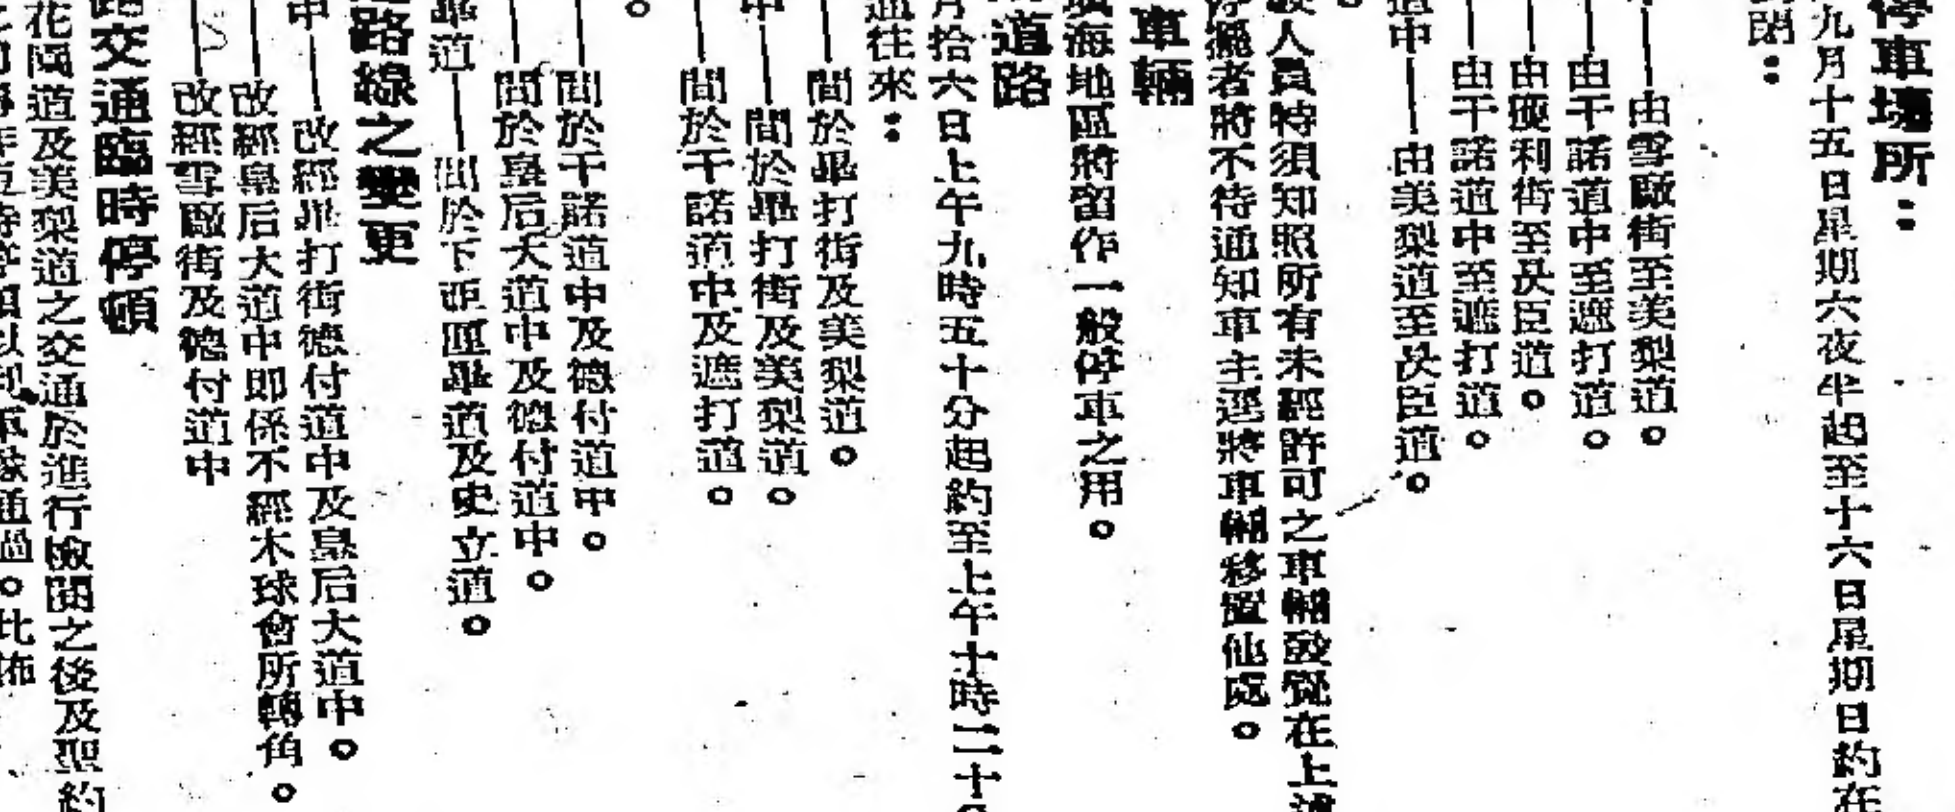 停車場所：
九月十五日星期六夜半起至十六日星期日約在
閉：
由雪廠街至美梨道。
由干諾道中至遮打道。
由廣利街至昃臣道。
由干諾道中至遮打道。
道中——由美梨道至昃臣道。
人員特須知照所有未經許可之車輛發覺在上
擺者將不待通知車主逕將車輛移置他處。
填海地區將留作一般停車之用。
車輛
道路
月拾六日上午九時五十分起約至上午十時二十
通往來：
間於畢打街及美梨道。
中——間於畢打街及美梨道。
間於干諾道中及遮打道。
間於干諾道中及德付道中。
間於皇后大道中及德付道中。
畢道——間於下亞厘畢道及史立道。
路線之變更
中——改經畢打街德付道中及皇后大道中。
改經皇后大道中即係不經木球會所轉角。
改經雪廠街及德付道中
路交通臨時停頓
花園道及美梨道之交通於進行檢閱之後及聖約
以利車隊通過。此佈